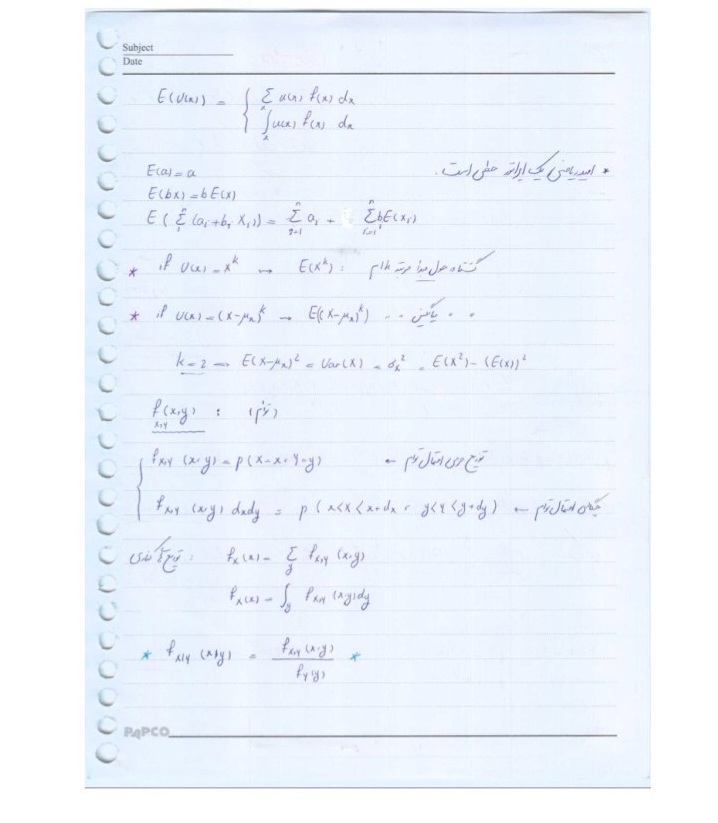 Subject
Date
E(u(x)) = { Σ_x u(x) f(x) dx
∫_x u(x) f(x) dx
* امید ریاضی یک اپراتور خطی است.
E(a) = a
E(bx) = bE(x)
E( Σ_1^n (a_i + b_i X_i)) = Σ_{i=1}^n a_i + Σ_{i=1}^n b_i E(x_i)
* if U(x) = x^k → E(x^k) : گشتاور حول مبدا مرتبه k ام
* if u(x) = (x-μ_x)^k → E((x-μ_x)^k) میانگین " " " "
k=2 → E(x-μ_x)^2 = Var(x) = σ_x^2 = E(x^2) - (E(x))^2
f_{x,y}(x,y) : (توام)
f_{x,y}(x,y) = p(X=x, Y=y) ← توزیع جرمی احتمال توام
f_{x,y}(x,y) dxdy = p(x<X<x+dx, y<Y<y+dy) ← چگالی احتمال توام
توزیع کناری : f_x(x) = Σ_y f_{x,y}(x,y)
f_x(x) = ∫_y f_{x,y}(x,y) dy
* f_{x|y}(x|y) = f_{x,y}(x,y) / f_y(y) *
PAPCO